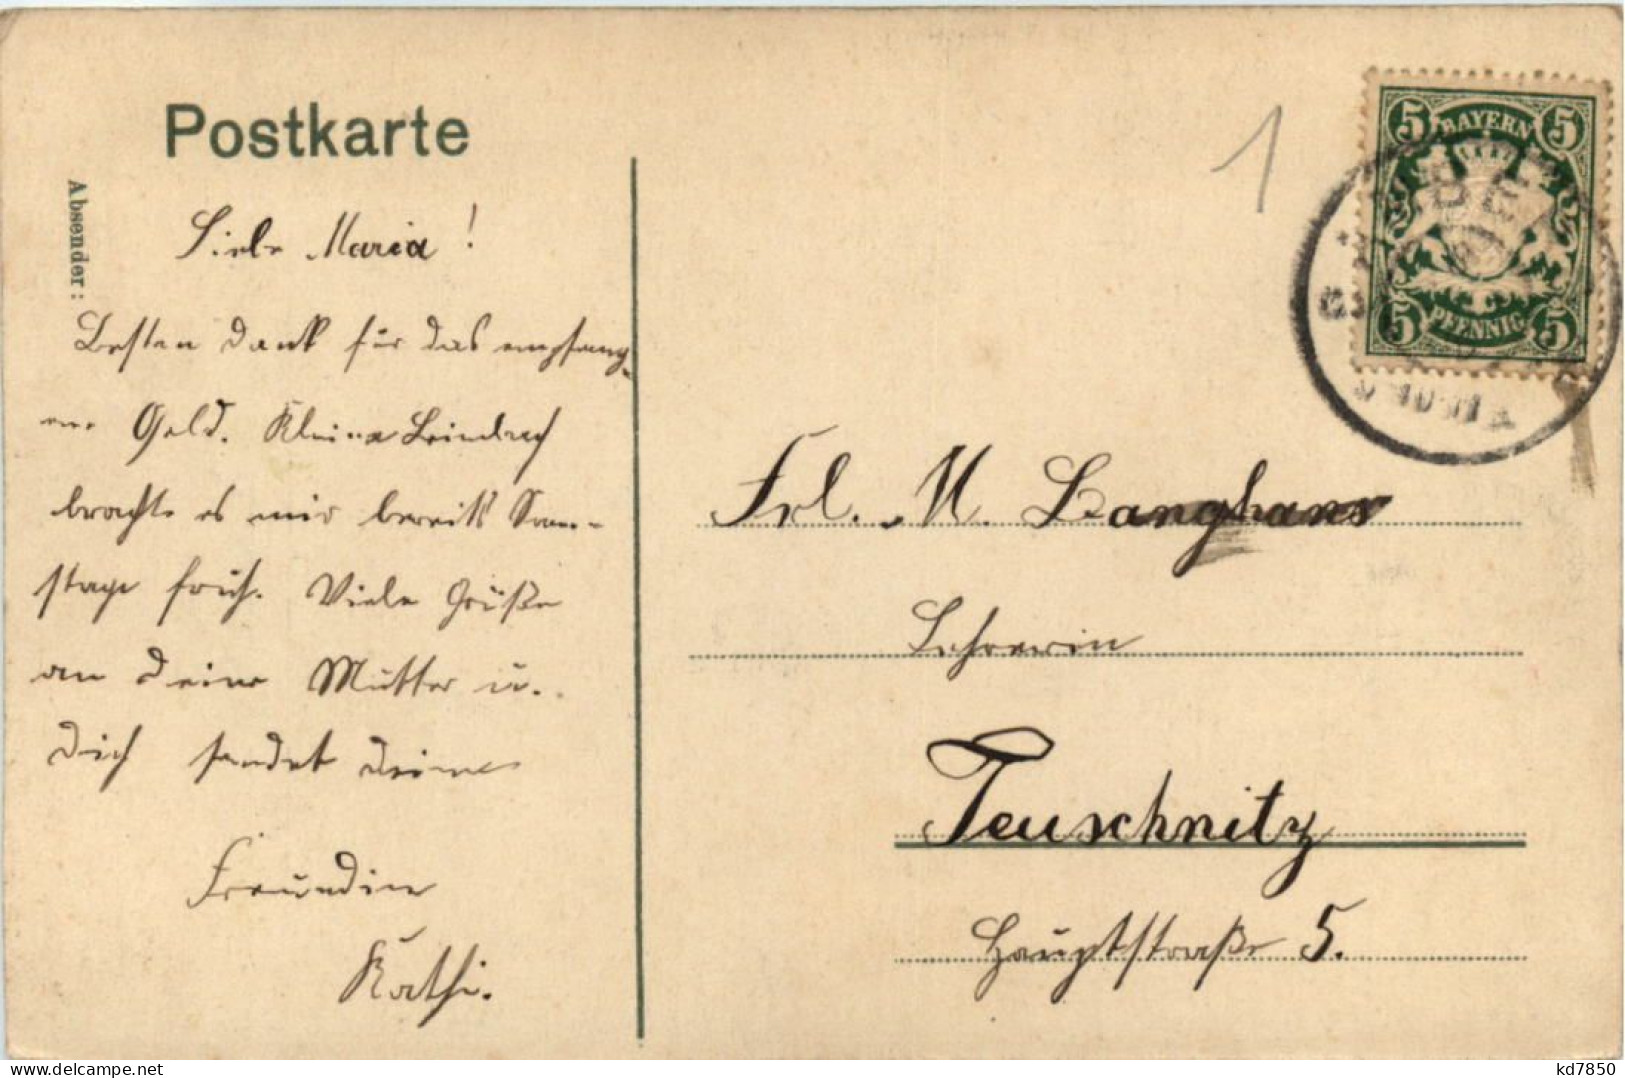 Postkarte
Absender:
Liebe Maria!
Besten Dank für das empfang-
ene Geld. Kleine
brachte es mir bereits Sam-
stage früh. Viele Grüße
an Deine Mutter u.
Dich sendet Deine
Freundin
Kathi.
1
5 BAYERN 5
5 PFENNIG 5
Frl. M. Langhans
Lehrerin
Teuschnitz
Hauptstraße 5.
www.delcampe.net
kd7850